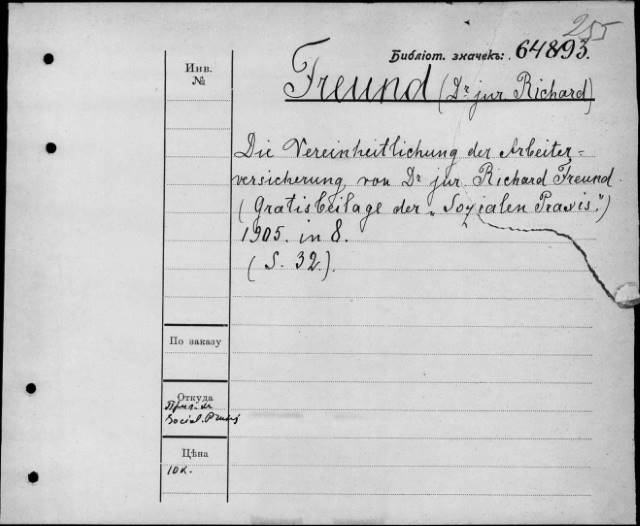 255
Библіот. значекъ: 64893.
Инв.
№
Freund (Dr jur. Richard)
Die Vereinheitlichung der Arbeiter=
versicherung, von Dr jur. Richard Freund.
(Gratisbeilage der „Sozialen Praxis.“)
1905. in 8.
(S. 32.).
По заказу
Откуда
Social. Praxis
Цѣна
10 к.